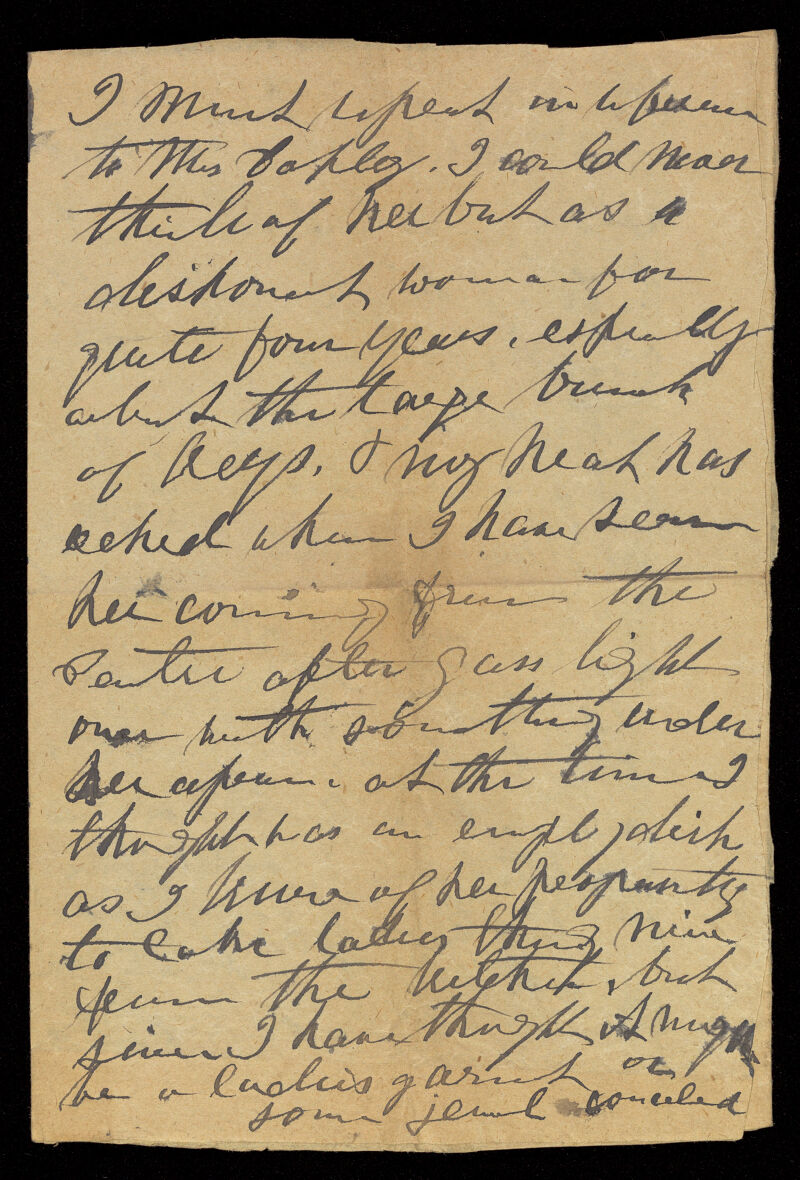 I must repeat in referenc
to Mrs Tapley. I could never
think of her but as a
dishonest woman for
quite four years, espeually
about the large bunch
of Keys, & my heat has
acked when I have seen
her coming from the
after gass light
over with something under
her aperne at the time I
thought was an empty dish
as I knew of her propensity
to take ladies things nice
from the kitchen, but
since I have thought it might
be a ladies garnet or
some jewel conceled